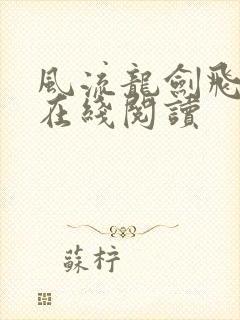 風流龍劍飛
在綫閱讀
蘇柠